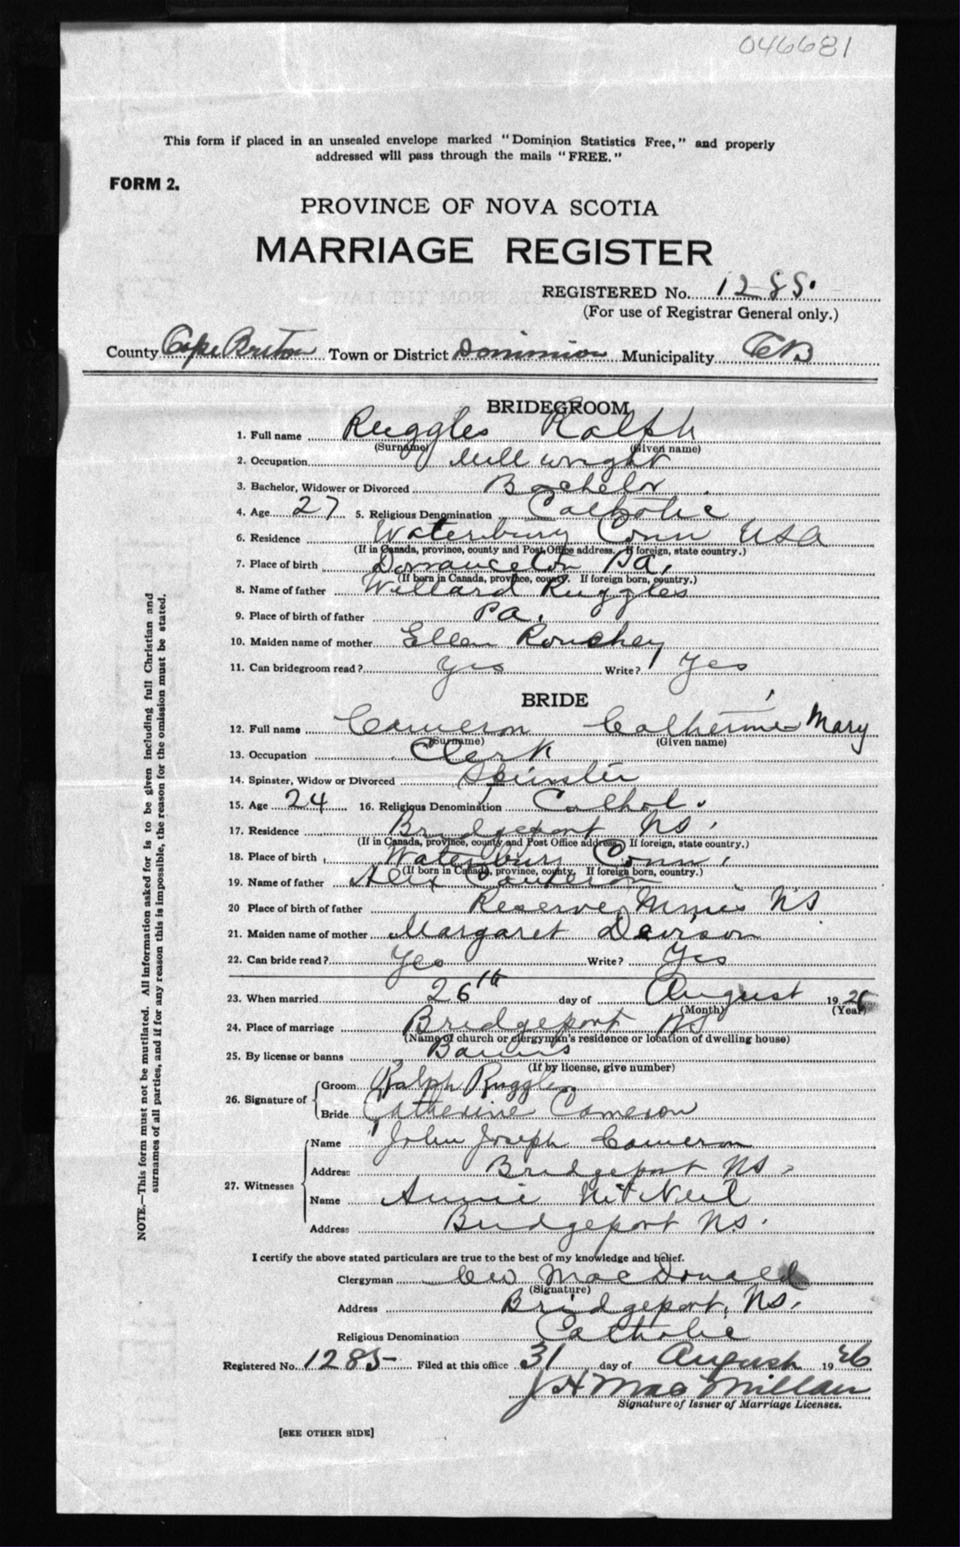 046681
This form if placed in an unsealed envelope marked "Dominion Statistics Free," and properly
addressed will pass through the mails "FREE."
FORM 2.
PROVINCE OF NOVA SCOTIA
MARRIAGE REGISTER
REGISTERED No. 1285.
(For use of Registrar General only.)
County Cape Breton Town or District Dominion Municipality CB
BRIDEGROOM
1. Full name Ruggles Ralph
(Surname) (Given name)
2. Occupation Millwright
3. Bachelor, Widower or Divorced Bachelor
4. Age 27 5. Religious Denomination Catholic
6. Residence Waterbury Conn USA
(If in Canada, province, county and Post Office address. If foreign, state country.)
7. Place of birth Dorranceton Pa.
(If born in Canada, province, county. If foreign born, country.)
8. Name of father Willard Ruggles
9. Place of birth of father Pa.
10. Maiden name of mother Ellen
11. Can bridegroom read? Yes Write? Yes
BRIDE
12. Full name Cameron Catherine Mary
(Surname) (Given name)
13. Occupation Clerk
14. Spinster, Widow or Divorced Spinster
15. Age 24 16. Religious Denomination Cathol.
17. Residence Bridgeport NS.
(If in Canada, province, county and Post Office address. If foreign, state country.)
18. Place of birth Waterbury Conn.
(If born in Canada, province, county. If foreign born, country.)
19. Name of father Alex Cameron
20 Place of birth of father Reserve Mines NS
21. Maiden name of mother Margaret Davison
22. Can bride read? Yes Write? Yes
23. When married 26th day of August 1926
(Month) (Year)
24. Place of marriage Bridgeport NS
(Name of church or clergyman's residence or location of dwelling house)
25. By license or banns Banns
(If by license, give number)
26. Signature of
Groom Ralph Ruggles
Bride Catherine Cameron
27. Witnesses
Name John Joseph Cameron
Address Bridgeport NS.
Name Annie McNeil
Address Bridgeport NS.
I certify the above stated particulars are true to the best of my knowledge and belief.
Clergyman CW MacDonald
(Signature)
Address Bridgeport, NS.
Religious Denomination Catholic
Registered No. 1285 Filed at this office 31 day of August 1926
J H MacMillan
Signature of Issuer of Marriage Licenses.
[SEE OTHER SIDE]
NOTE.—This form must not be mutilated. All information asked for is to be given including full Christian and
surnames of all parties, and if for any reason this is impossible, the reason for the omission must be stated.